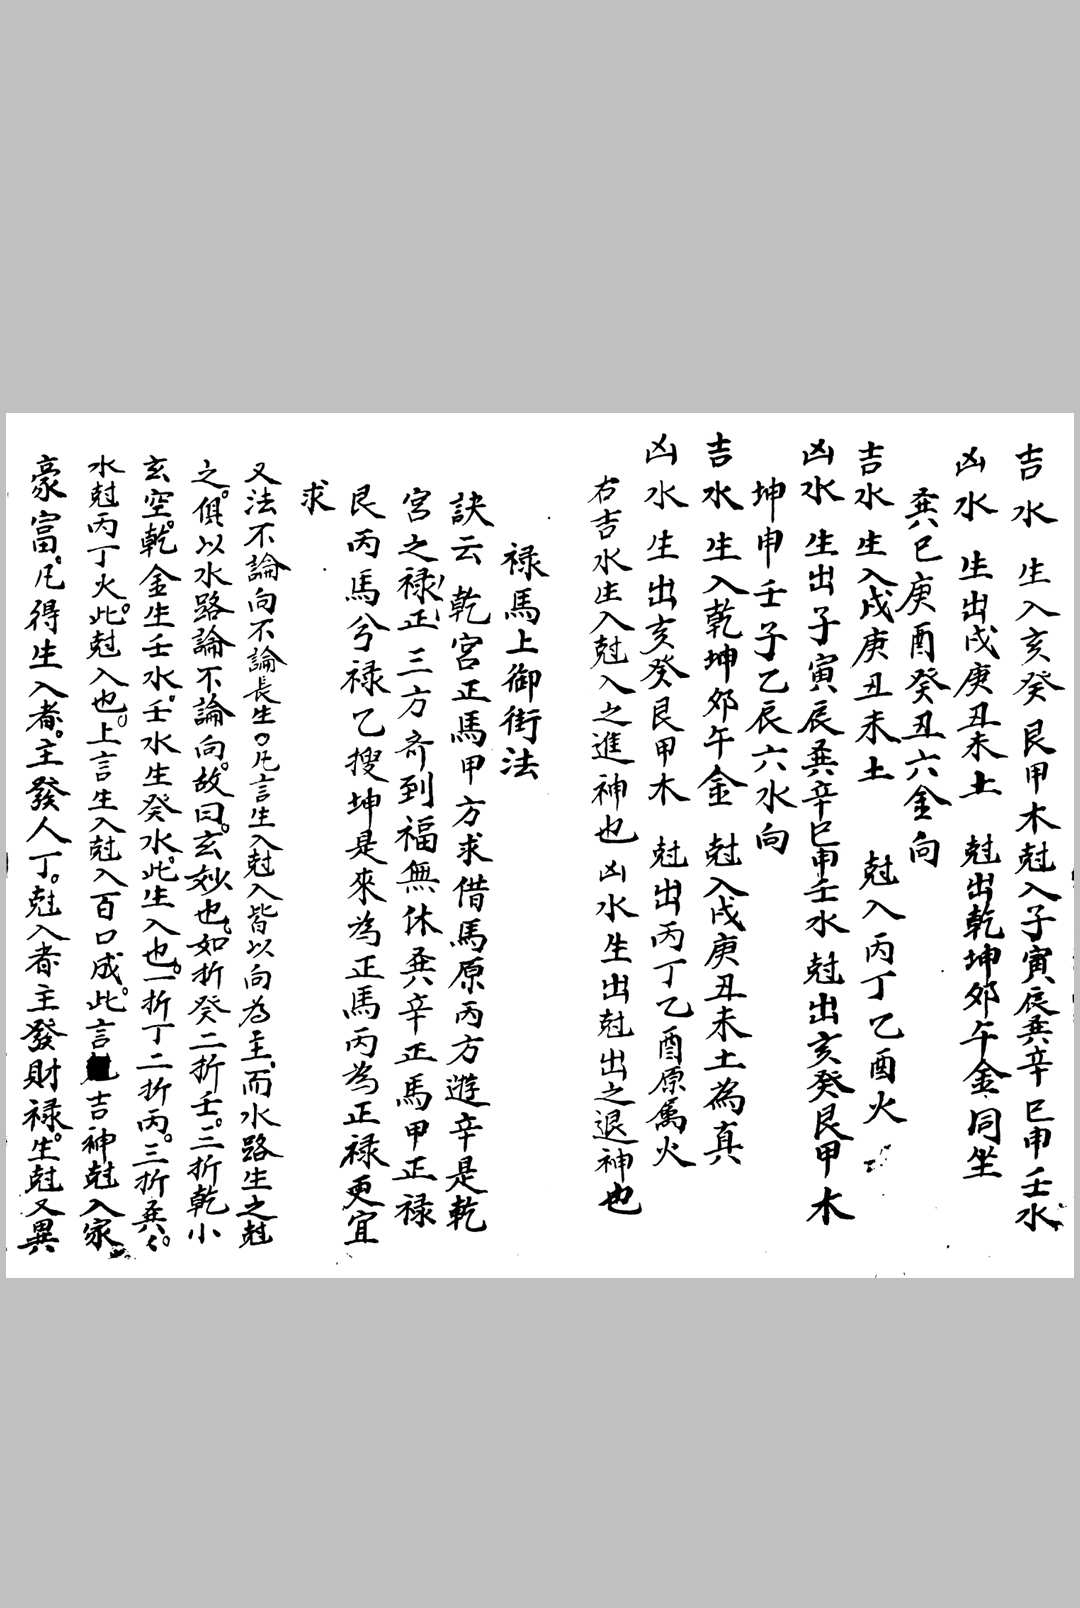 吉水 生入亥癸艮甲木尅入子寅辰巽辛巳申壬水
凶水 生出戌庚丑未土 尅出乾坤卯午金同坐
巽巳庚酉癸丑六金向
吉水 生入戌庚丑未土 尅入丙丁乙酉火
凶水 生出子寅辰巽辛巳申壬水 尅出亥癸艮甲木
坤申壬子乙辰六水向
吉水 生入乾坤卯午金 尅入戌庚丑未土為真
凶水 生出亥癸艮甲木 尅出丙丁乙酉原属火
右吉水生入尅入之進神也凶水生出尅出之退神也
禄馬上御街法
訣云 乾宮正馬甲方求借馬原丙方遊辛是乾
宮之禄正三方奇到福無休巽辛正馬甲正禄
艮丙馬兮禄乙搜坤是來為正馬丙為正禄更宜
求
又法不論向不論長生。凡言生入尅入皆以向為主。而水路生之尅
之。俱以水路論不論向。故曰。玄妙也。如折癸二折壬。三折乾小
玄空。乾金生壬水。壬水生癸水。此生入也。一折丁二折丙。三折巽。
水尅丙丁火。此尅入也。上言生入尅入百口成。此言吉神尅入家
豪富。凡得生入者。主發人丁。尅入者主發財禄。生尅又異